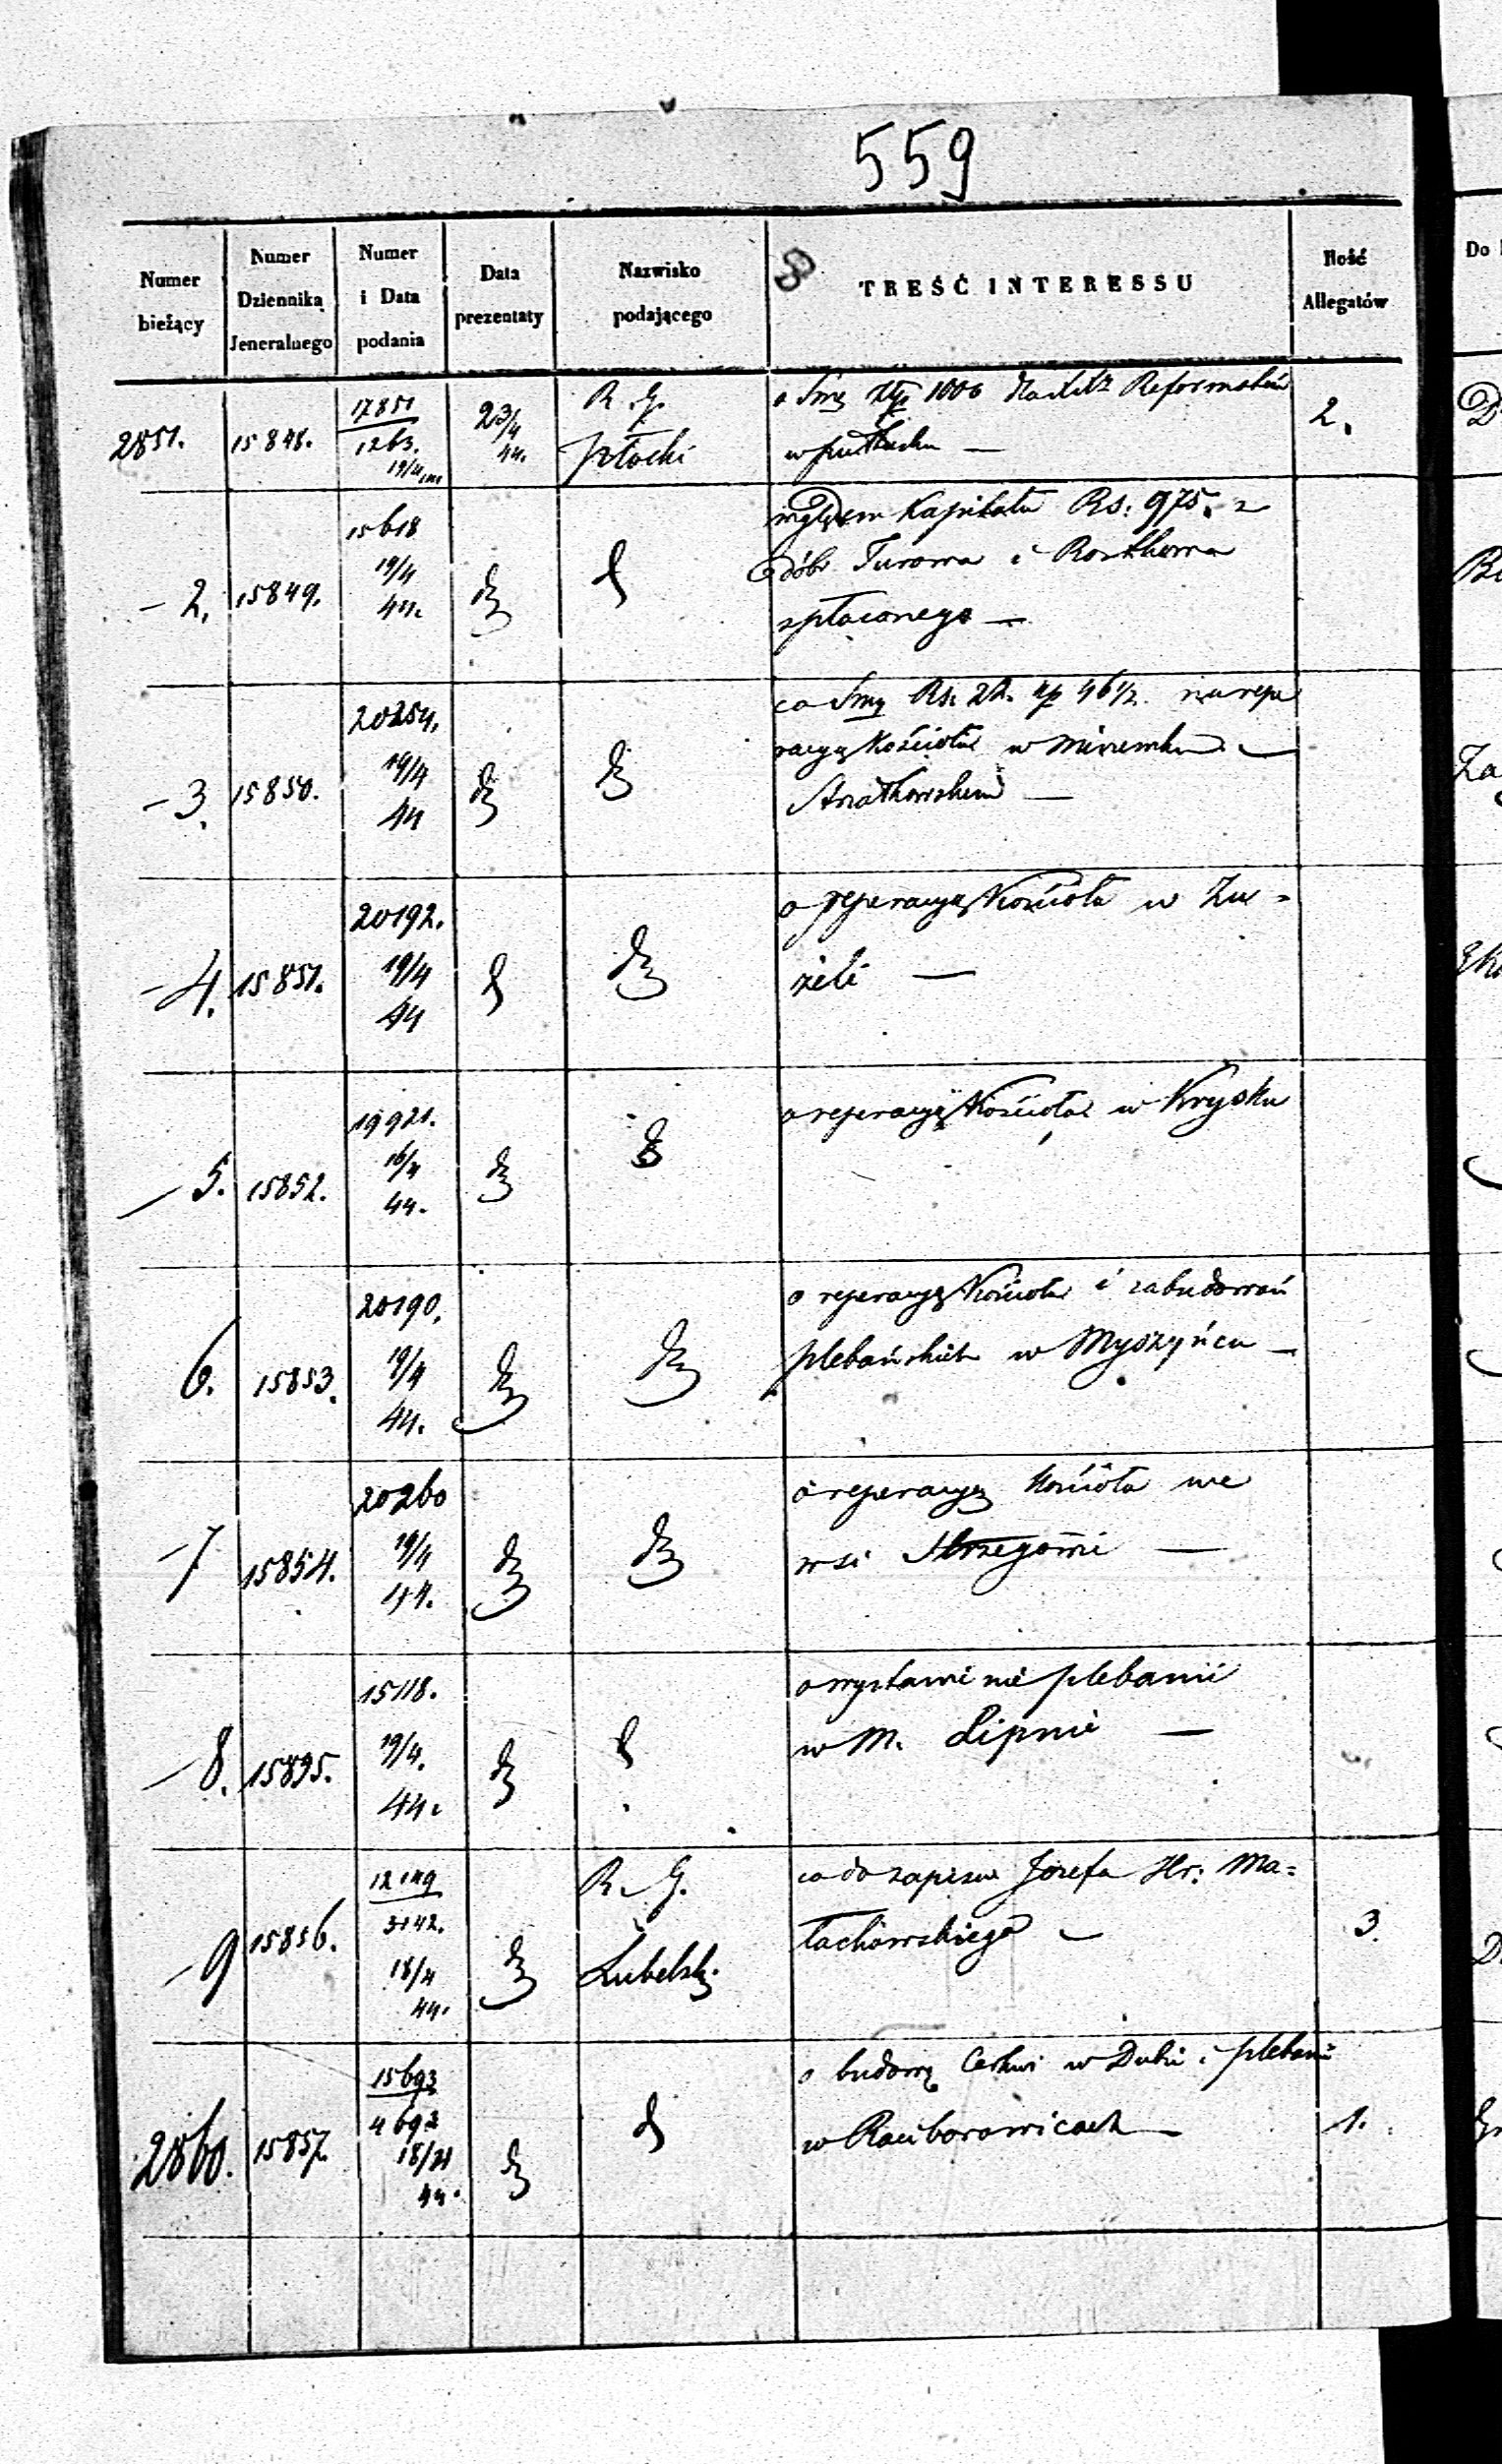 559
Numer bieżący
Numer Dziennika Jeneralnego
Numer i Data podania
Data prezentaty
Nazwisko podającego
TREŚĆ INTERESSU
Ilość Allegatów
Do
2851. 15848. 17851 1263. 19/4 23/4 44. R. G. Płocki
o Smę złp 1000 Reformatów
w Pułtusku —
2.
- 2. 15849. 15618 19/4 44.
względem Kapitału Rs: 975. z
dóbr Turowa i
spłaconego —
- 3. 15850. 20254. 19/4 44
co Smy Rs. 22. kp 46 1/2. na repa
racyą Kościoła w —
—
- 4. 15851. 20192. 19/4 44
o reperacyą Kościoła w Zu=
zeli —
- 5. 15852. 19921. 16/4 44.
o reperacyą Kościoła w Krysku
6. 15853. 20190. 19/4 44.
o reperacyą Kościoła i zabudowań
plebańskich w Myszyńcu —
- 7 15854. 20260 19/4 44.
o reperacyą Kościoła we
wsi Strzegowie —
- 8. 15895. 15118. 19/4. 44.
o wystawienie plebanii
w M. Lipnie —
- 9 15856. 12149 3142. 18/4 44. R. G. Lubelski.
co do zapisu Józefa Hr: Ma=
łachowskiego —
3.
2860. 15857. 15693 4692 18/4 44.
o budowę Cerkwi w Dubie i plebanii
w Raciborowicach —
1.